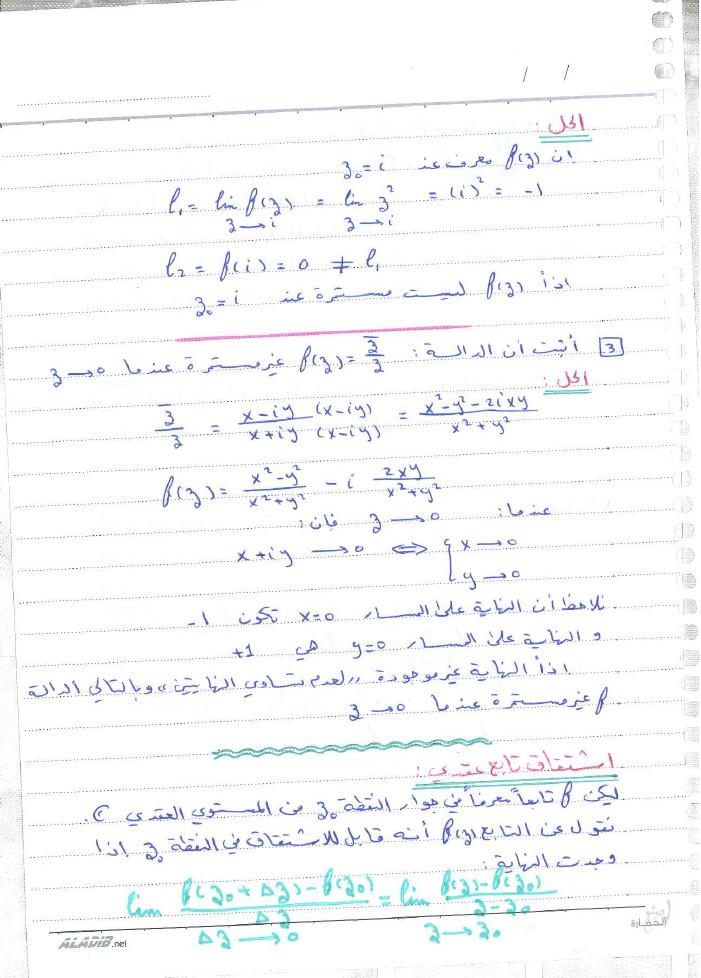 / /
الحل:
ان f(z) معرف عند z₀ = i
l₁ = lim f(z) = lim z² = (i)² = -1
z→i z→i
l₂ = f(i) = 0 ≠ l₁
اذاً f(z) ليست مستمرة عند z₀ = i
3 أثبت ان الدالة: f(z) = z̄/z غير مستمرة عندما z→0
الحل:
z̄/z = (x-iy)(x-iy)/(x+iy)(x-iy) = (x²-y²-2ixy)/(x²+y²)
f(z) = (x²-y²)/(x²+y²) - i 2xy/(x²+y²)
عندما: z→0 فإن:
x+iy → 0 ⇔ { x→0
y→0
نلاحظ أن النهاية على المسار x=0 تكون -1
و النهاية على المسار y=0 هي +1
اذاً النهاية غير موجودة ,,لعدم تساوي النهايتين,, وبالتالي الدالة
f غير مستمرة عندما z→0
اشتقاق تابع عقدي:
ليكن f تابعاً معرفاً في جوار النقطة z₀ من المستوي العقدي C.
نقول عن التابع f(z) أنه قابل للاشتقاق في النقطة z₀ اذا
وجدت النهاية:
lim (f(z₀+Δz)-f(z₀))/Δz = lim (f(z)-f(z₀))/(z-z₀)
Δz→0 z→z₀
ALADIB.net
الحضارة